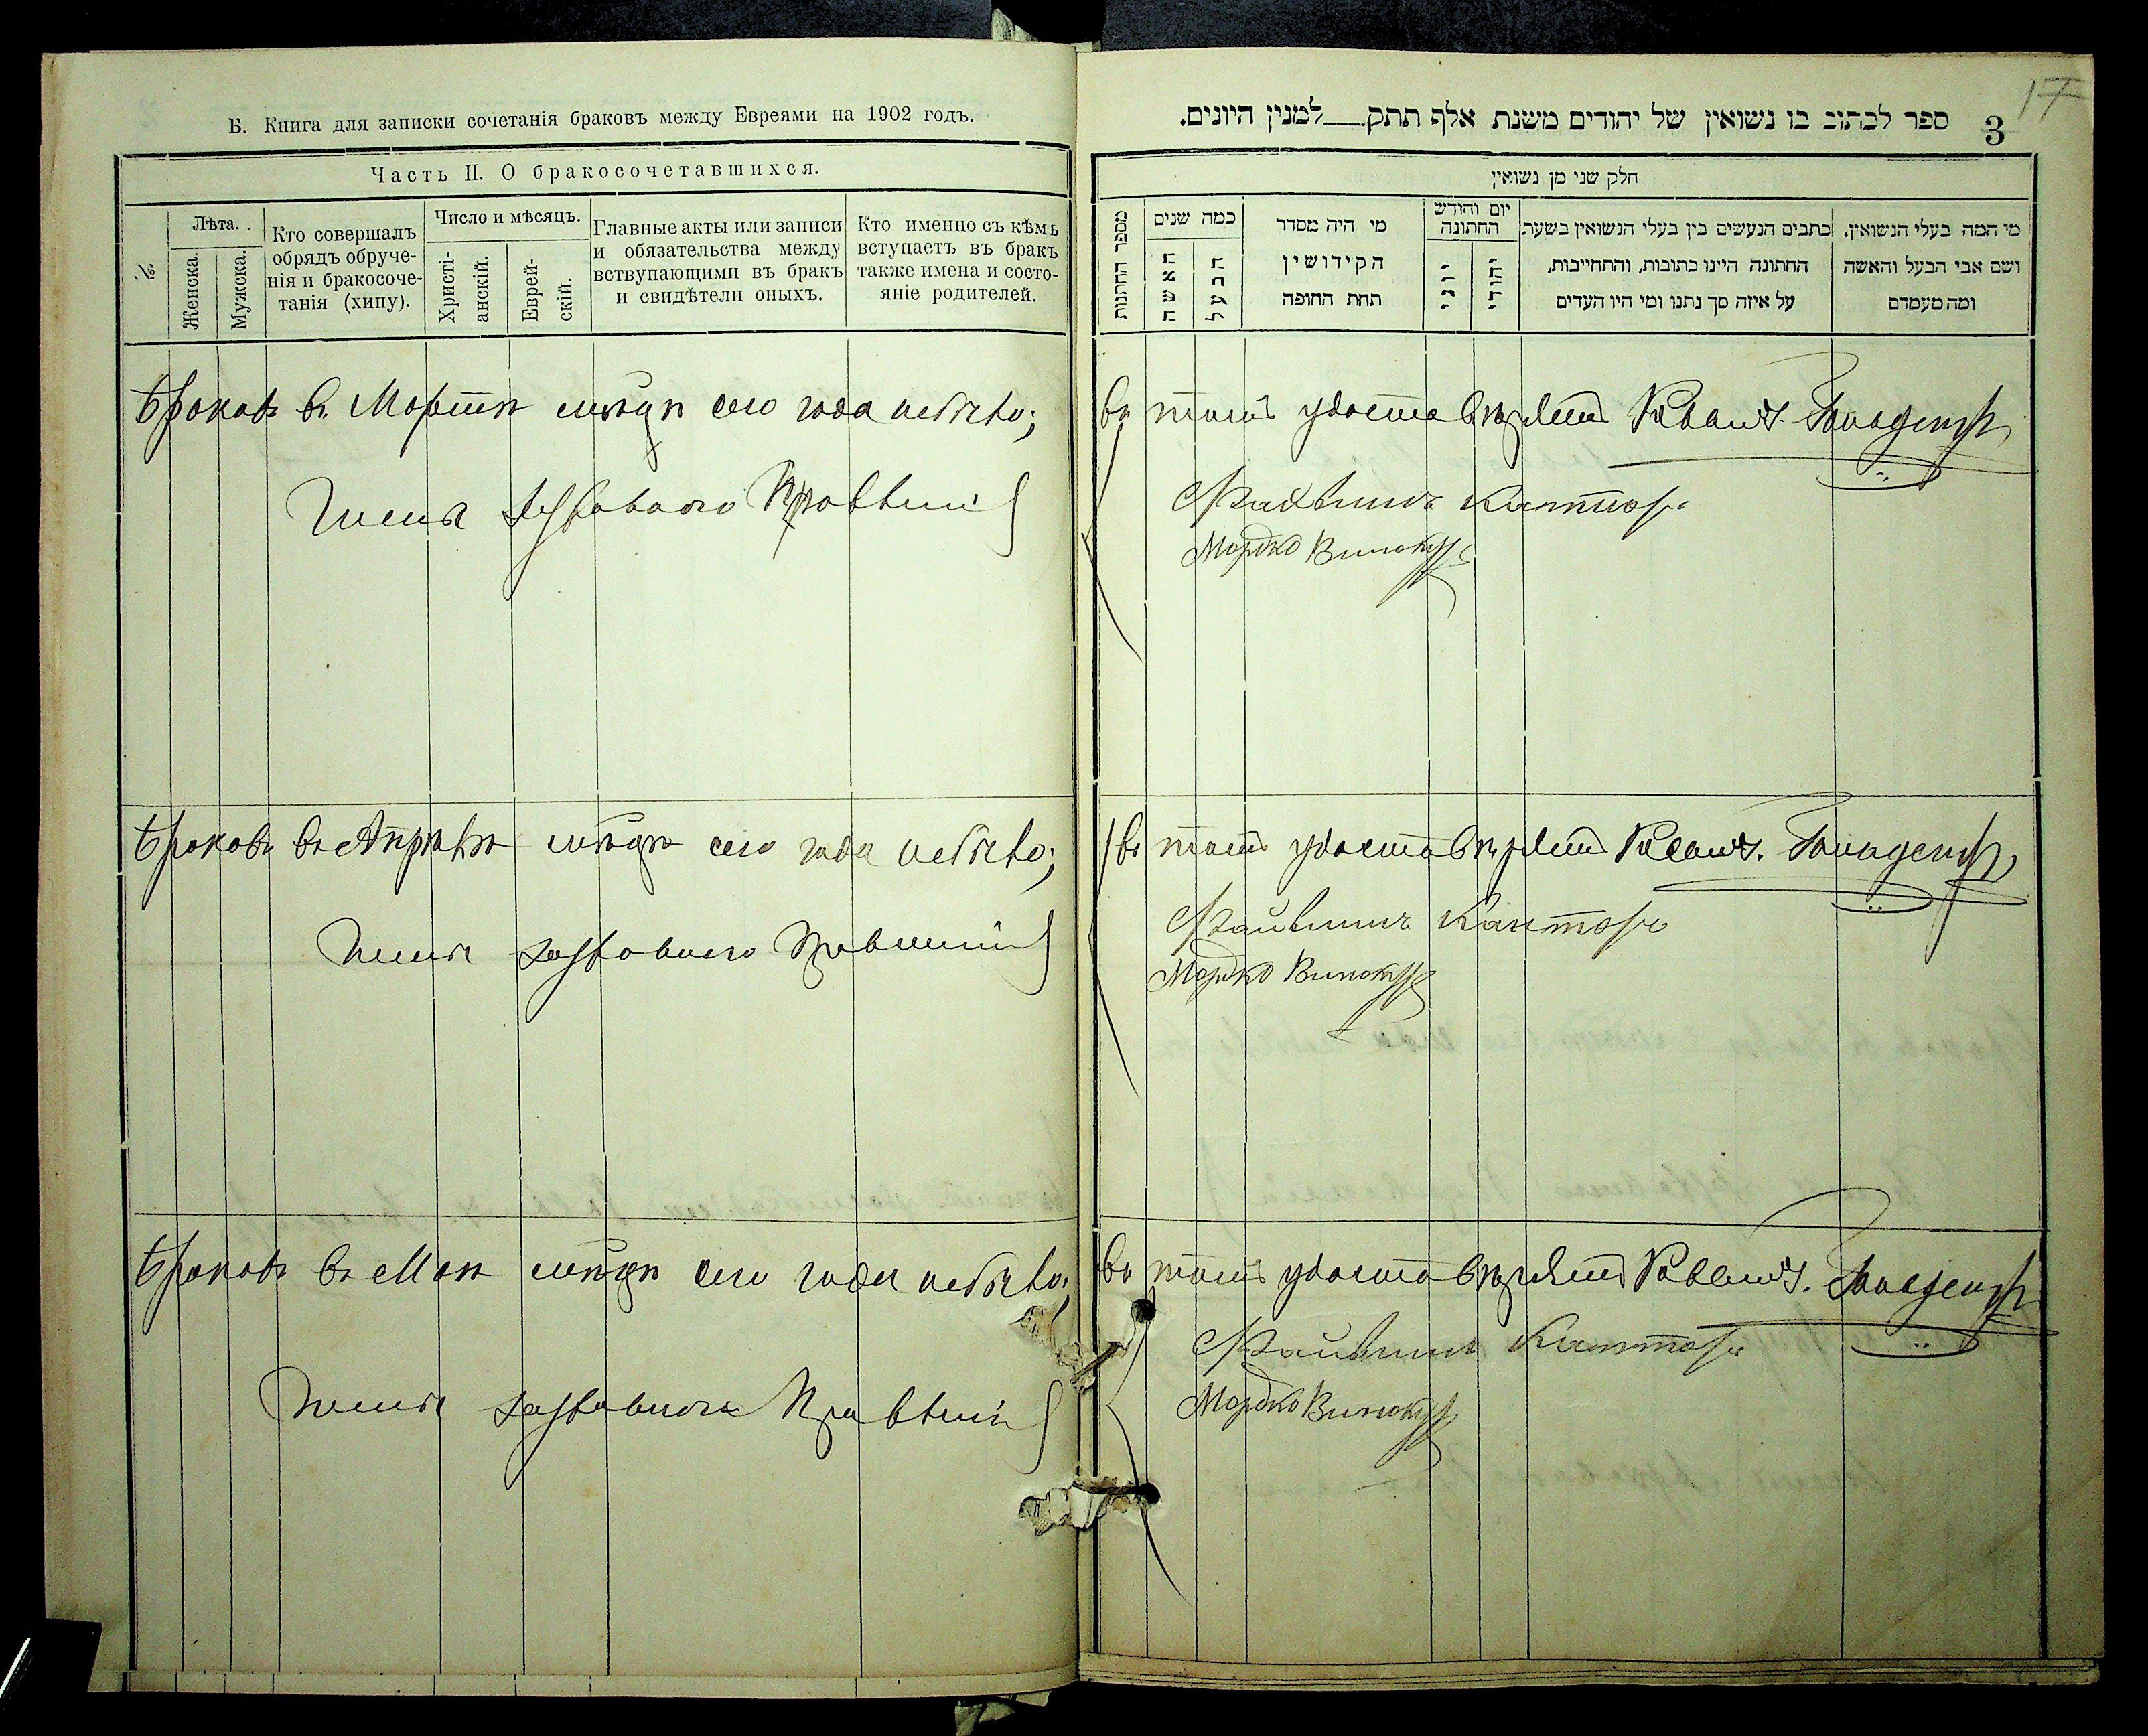 Б. Книга для записки сочетанія браковъ между Евреями на 1902 годъ.
Часть II. О бракосочетавшихся.
№
Лѣта.
Женска.
Мужска.
Кто совершалъ
обрядъ обруче-
нія и бракосоче-
танія (хипу).
Число и мѣсяцъ.
Христі-
анскій.
Еврей-
скій.
Главные акты или записи
и обязательства между
вствупающими въ бракъ
и свидѣтели оныхъ.
Кто именно съ кѣмъ
вступаетъ въ бракъ
также имена и состо-
яніе родителей.
Браковъ въ Мартѣ мѣсяцѣ сего года небыло;
Члены духовного Правленія
Браковъ въ Апрѣлѣ мѣсяцѣ сего года небыло;
Члены духовного Правленія
Браковъ въ Маѣ мѣсяцѣ сего года небыло;
Члены духовного Правленія
17
3
ספר לכתוב בו נשואין של יהודים משנת אלף תתק למנין היונים.
חלק שני מן נשואין
מספר החתנות
כמה שנים
האשה
הבעל
מי היה מסדר
הקידושין
תחת החופה
יום וחודש
החתונה
יוני
יהודי
כתבים הנעשים בין בעלי הנשואין בשעת
החתונה היינו כתובות, והתחייבות,
על איזה סך נתנו ומי היו העדים
מי המה בעלי הנשואין.
ושם אבי הבעל והאשה
ומה מעמדם
въ томъ удостовѣряетъ Раввинъ
Файвишъ Канторъ
Мордко Винокуръ
въ томъ удостовѣряетъ Раввинъ
Файвишъ Канторъ
Мордко Винокуръ
въ томъ удостовѣряетъ Раввинъ
Файвишъ Канторъ
Мордко Винокуръ